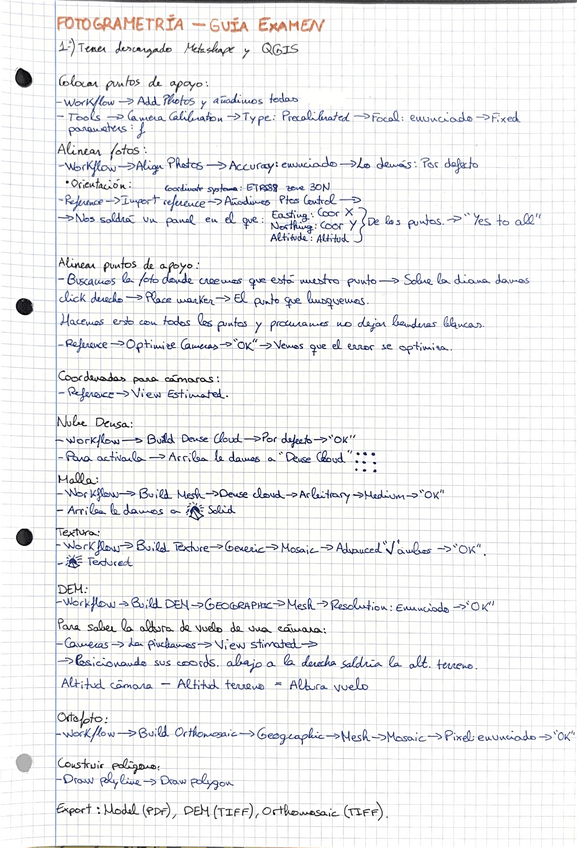 FOTOGRAMETRÍA — GUÍA EXAMEN
1º) Tener descargado Metashape y QGIS
Colocar puntos de apoyo:
- Workflow → Add Photos y añadimos todas
- Tools → Camera Calibration → Type: Precalibrated → Focal: enunciado → Fixed
parameters: f
Alinear fotos:
- Workflow → Align Photos → Accuray: enunciado → Lo demás: Por defecto
• Orientación: coordinate systems: ETRS89 zone 30N
- Reference → Import reference → Añadimos Ptos Control →
→ Nos saldrá un panel en el que: Easting: Coor X
Northing: Coor Y } De los puntos. → "Yes to all"
Altitude: Altitud
Alinear puntos de apoyo:
- Buscamos la foto donde creemos que está nuestro punto → Sobre la diana damos
click derecho → Place marker → El punto que busquemos.
Hacemos esto con todos los puntos y procuramos no dejar banderas blancas.
- Reference → Optimize Cameras → "OK" → Vemos que el error se optimiza.
Coordenadas para cámaras:
- Reference → View Estimated.
Nube Densa:
- Workflow → Build Dense Cloud → Por defecto → "OK"
- Para activarla → Arriba le damos a "Dense Cloud"
Malla:
- Workflow → Build Mesh → Dense cloud → Arbitrary → Medium → "OK"
- Arriba le damos a Solid
Textura:
- Workflow → Build Texture → Generic → Mosaic → Advanced "√" ambos → "OK".
- Textured
DEM:
- Workflow → Build DEM → GEOGRAPHIC → Mesh → Resolution: Enunciado → "OK"
Para saber la altura de vuelo de una cámara:
- Cameras → Las pinchamos → View stimated →
→ Posicionando sus coords. abajo a la derecha saldría la alt. terreno.
Altitud cámara - Altitud terreno = Altura vuelo
Ortofoto:
- Workflow → Build Orthomosaic → Geographic → Mesh → Mosaic → Pixel: enunciado → "OK"
Construir polígono:
- Draw polyline → Draw polygon
Export: Model (PDF), DEM (TIFF), Orthomosaic (TIFF).